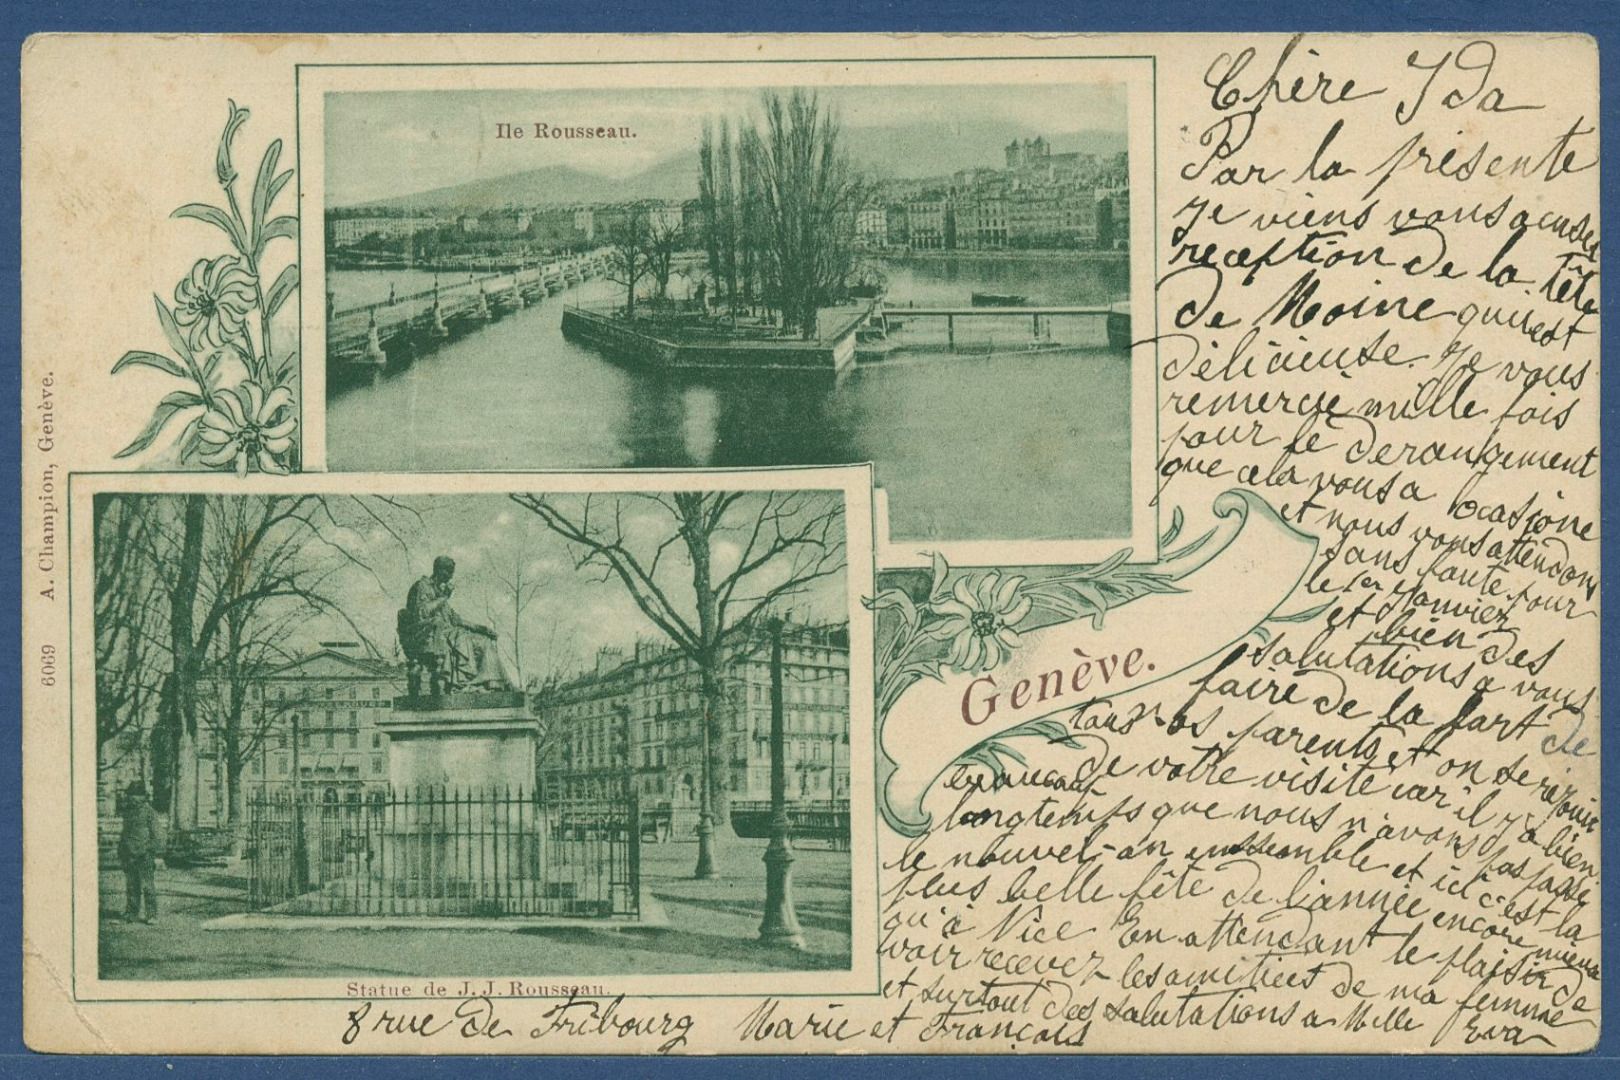 Ile Rousseau.
Genève.
Statue de J. J. Rousseau.
6069 A. Champion, Genève.
Chère Ida
Par la présente
je viens vous acuser
reception de la tête
de Moine qui est
délicieuse. Je vous
remercie mille fois
pour le derangement
que cela vous a ocasione
et nous vous attendons
sans faute pour
le 1er Janvier
et bien des
salutations a vous
faire de la part de
tous nos parents et on se rejouit
beaucoup de votre visite car il y a bien
longtemps que nous n'avons pas passé
le nouvel-an enssemble et ici c'est la
plus belle fête de l'année encore mieux
qu'à Nice En attendant le plaisir de
voir recevez les amitiees de ma femme
et surtout des salutations a Mlle Eva
8 rue de Fribourg Marie et François